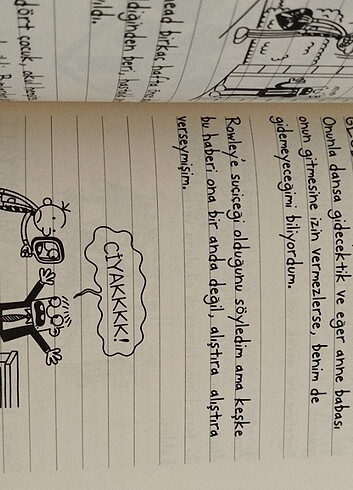 Onunla dansa gidecektik ve eğer anne babası
onun gitmesine izin vermezlerse, benim de
gidemeyeceğimi biliyordum.
Rowley'e suçiçeği olduğunu söyledim ama keşke
bu haberi ona bir anda değil, alıştıra alıştıra
verseymişim.
CİYAKKKK!
birkaç hafta
diğinden beri,
dört çocuk,